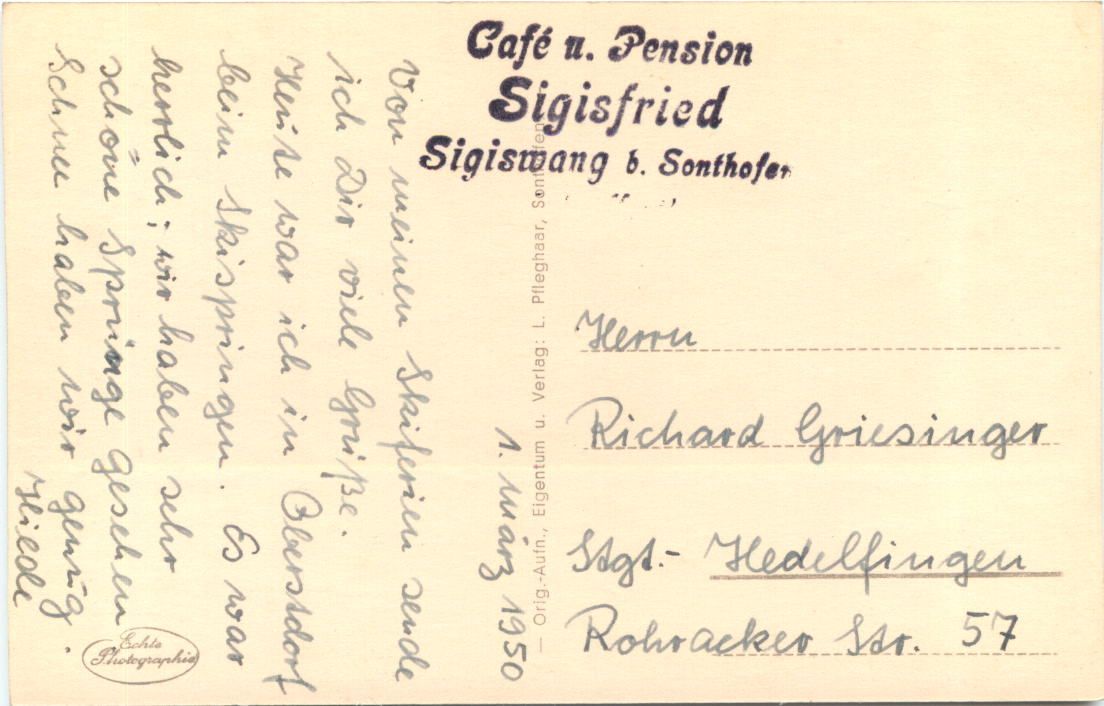 Café u. Pension
Sigisfried
Sigiswang b. Sonthofen
1. März 1950
Von meinen Skiferien sende
ich Dir viele Grüße.
Heute war ich in Oberstdorf
beim Skispringen. Es war
herrlich; wir haben sehr
schöne Sprünge gesehen
Schnee haben wir genug.
Hiede
Orig.-Aufn., Eigentum u. Verlag: L. Pfleghaar, Sonthofen
Echte
Photographie
Herrn
Richard Griesinger
Stgt.- Hedelfingen
Rohracker Str. 57